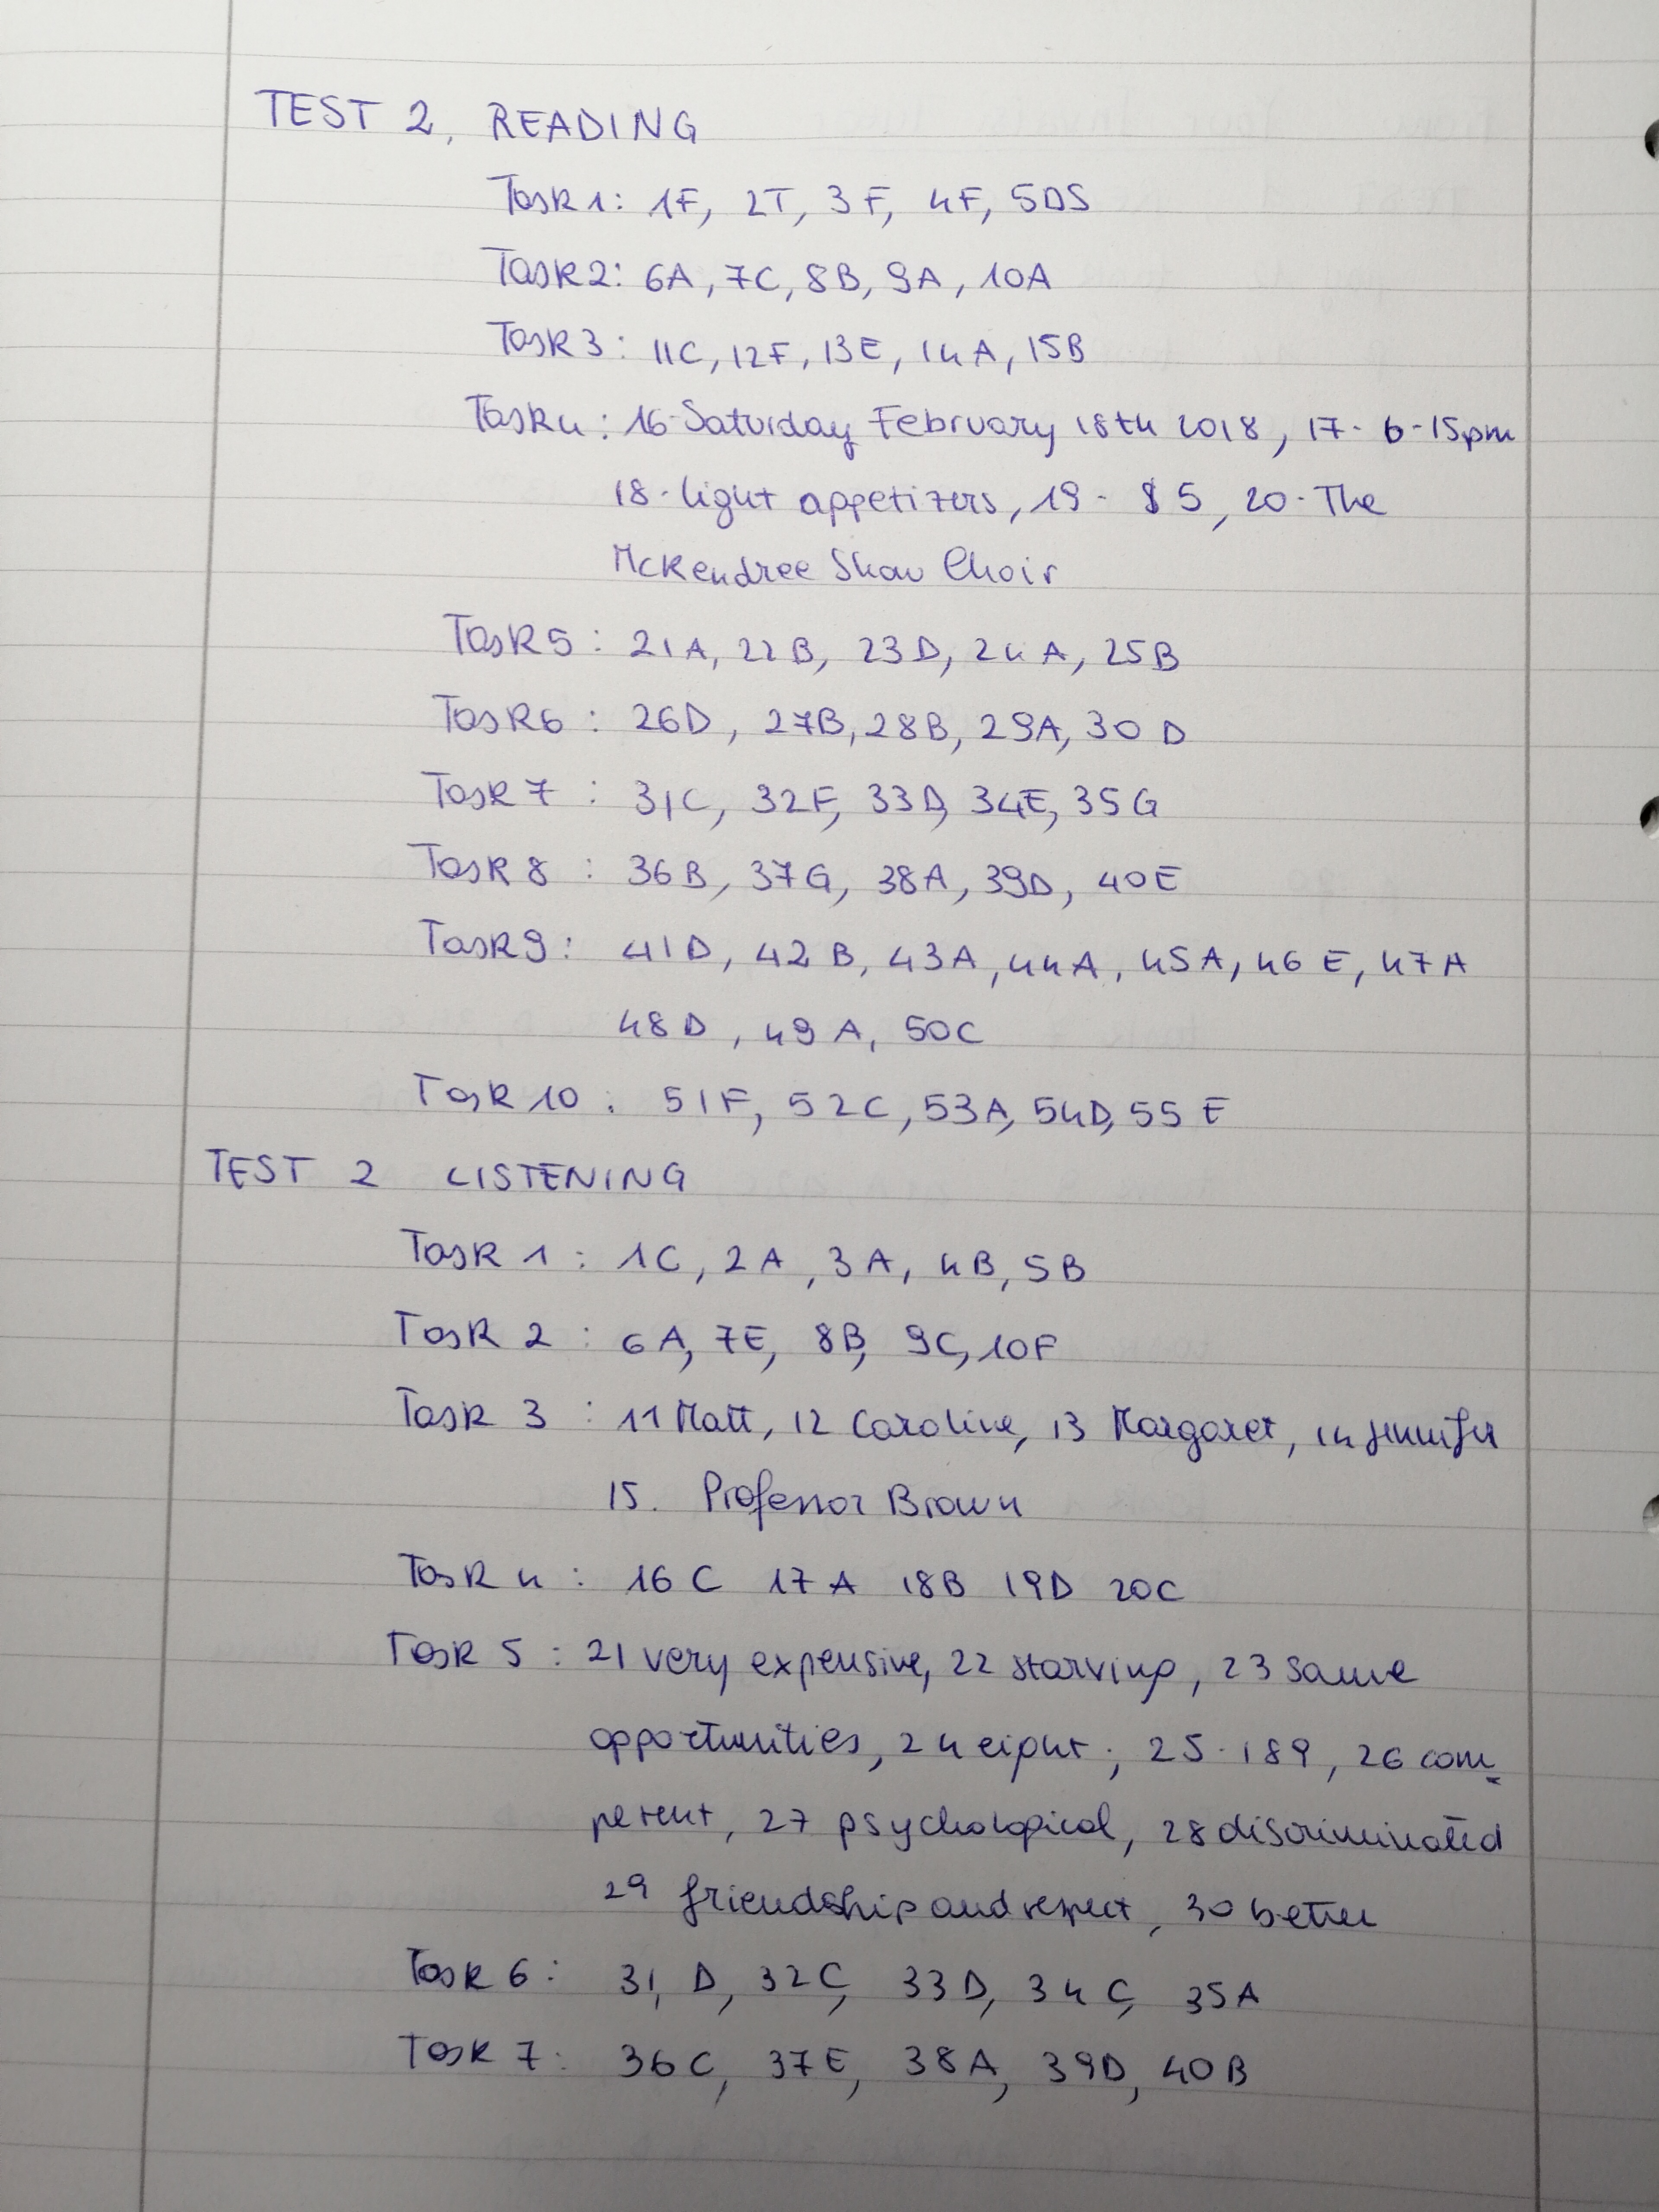 TEST 2, READING
Task 1: 1F, 2T, 3F, 4F, 5DS
Task 2: 6A, 7C, 8B, 9A, 10A
Task 3: 11C, 12F, 13E, 14A, 15B
Task 4: 16-Saturday February 18th 2018, 17- 6-15pm
18-light appetizers, 19 - $5, 20-The
McKendree Show Choir
Task 5: 21A, 22B, 23D, 24A, 25B
Task 6: 26D, 27B, 28B, 29A, 30D
Task 7: 31C, 32F, 33D, 34E, 35G
Task 8: 36B, 37G, 38A, 39D, 40E
Task 9: 41D, 42B, 43A, 44A, 45A, 46E, 47A
48D, 49A, 50C
Task 10: 51F, 52C, 53A, 54D, 55E
TEST 2 LISTENING
Task 1: 1C, 2A, 3A, 4B, 5B
Task 2: 6A, 7E, 8B, 9C, 10F
Task 3: 11 Matt, 12 Caroline, 13 Margaret, 14 Jennifer
15. Professor Brown
Task 4: 16C 17A 18B 19D 20C
Task 5: 21 very expensive, 22 starving, 23 same
opportunities, 24 eight, 25-189, 26 com-
petent, 27 psychological, 28 discriminated
29 friendship and respect, 30 better
Task 6: 31, D, 32C, 33D, 34C, 35A
Task 7: 36C, 37E, 38A, 39D, 40B